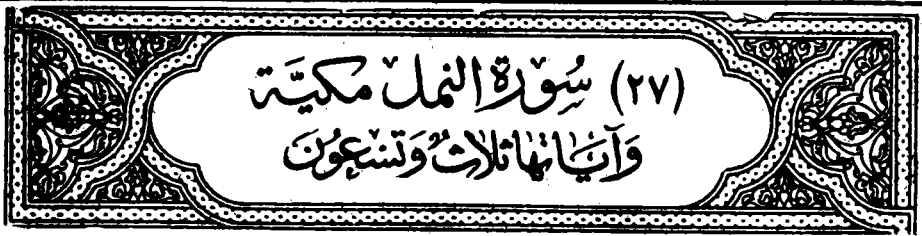 (٢٧) سُورَةُ النَّمل مَكيَّة
وَآيَاتها ثلاثٌ وَتسْعُونَ